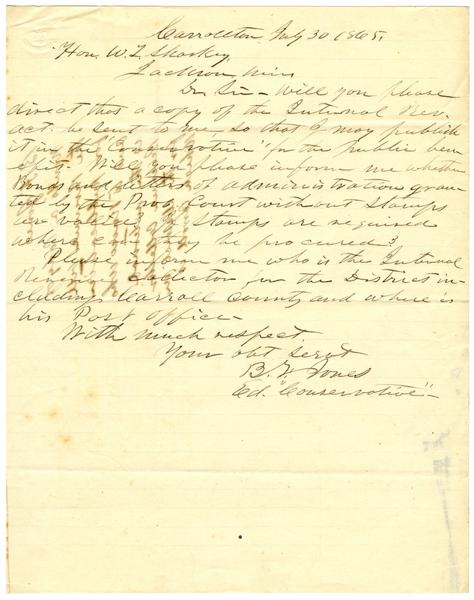 Carrollton July 30 1865.
Hon. W. L. Sharkey,
Jackson Miss
Dr. Sir – Will you please
direct that a copy of the Internal Rev.
act. be sent to me, so that I may publish
it in the "Conservative" for the public ben-
efit. Will you please inform me whether
Bonds and letters of administration gran-
ted by the Prob. Court without Stamps
are valid. If Stamps are required
where can they be procured?
Please inform me who is the Internal
Revenue Collector for the District in-
cluding Carroll County and where is
his Post office –
With much respect
Your obt servt
B. F. Jones
Ed. "Conservative" –